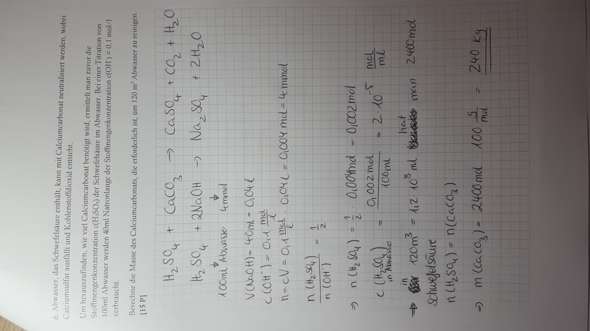 6. Abwasser, das Schwefelsäure enthält, kann mit Calciumcarbonat neutralisiert werden, wobei
Calciumsulfat ausfällt und Kohlenstoffdioxid entsteht.
Um herauszufinden, wie viel Calciumcarbonat benötigt wird, ermittelt man zuvor die
Stoffmengenkonzentration c(H₂SO₄) der Schwefelsäure im Abwasser. Bei einer Titration von
100ml Abwasser werden 40ml Natronlauge der Stoffmengenkonzentration c(OH⁻) = 0,1 mol/l
verbraucht.
Berechne die Masse des Calciumcarbonats, die erforderlich ist, um 120 m³ Abwasser zu reinigen.
[15 P]
H₂SO₄ + CaCO₃ → CaSO₄ + CO₂ + H₂O
H₂SO₄ + 2NaOH → Na₂SO₄ + 2H₂O
100ml Abwasser 4mmol
V(NaOH) = 40ml = 0,04l
c(OH⁻) = 0,1 mol/l
n = cV = 0,1 mol/l · 0,04l = 0,004mol = 4mmol
n(H₂SO₄) / n(OH⁻) = 1/2
⇒ n(H₂SO₄) = 1/2 · 0,004mol = 0,002mol
c(H₂SO₄) in Abwasser = 0,002mol / 100ml = 2·10⁻⁵ mol/ml
⇒ in 120m³ = 1,2·10⁸ml hat man 2400mol
Schwefelsäure
n(H₂SO₄) = n(CaCO₃)
⇒ m(CaCO₃) = 2400mol · 100 g/mol = 240kg